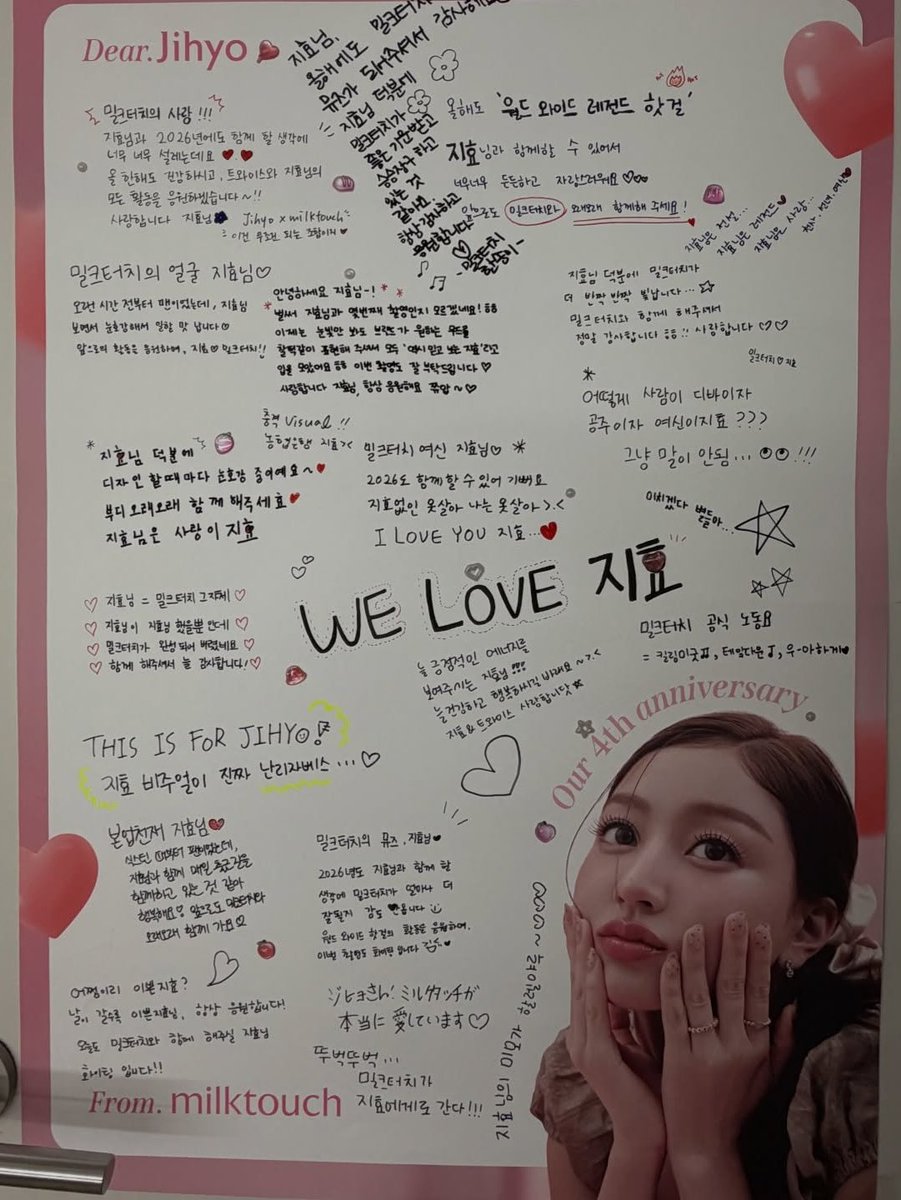 Dear. Jihyo
지효님,
올해에도 밀크터치
뮤즈가 되어주셔서 감사해요
지효님 덕분에
밀크터치가
좋은 기운받고
승승장구 하고
있는 것
같아요
항상 감사하고
응원합니다
밀크터치
올해도 '월드 와이드 레전드 핫걸'
지효님과 함께할 수 있어서
너무너무 든든하고 자랑스러워요
앞으로도 밀크터치와 오래오래 함께해 주세요!
지효님은 전설...
지효님은 레전드
지효님은 사랑...
밀크터치의 사랑!!!
지효님과 2026년에도 함께 할 생각에
너무 너무 설레는데요
올 한해도 건강하시고, 트와이스와 지효님의
모든 활동을 응원하겠습니다~!!
사랑합니다 지효님
Jihyo x milktouch
이건 무조건 되는 조합이지
밀크터치의 얼굴 지효님♡
오랜 시간 전부터 팬이었는데, 지효님
보면서 눈호강해서 일할 맛 납니다
앞으로의 활동을 응원하며, 지효♡밀크터치!!
안녕하세요 지효님~!
벌써 지효님과 몇번째 촬영인지 모르겠네요! ㅎㅎ
이제는 눈빛만 봐도 브랜드가 원하는 무드를
찰떡같이 표현해 주셔서 모두 '역시 믿고 보는 지효'라고
입을 모았어요 ㅎㅎ 이번 촬영도 잘 부탁드립니다♡
사랑합니다 지효님, 항상 응원해요 쮸압~♡
지효님 덕분에 밀크터치가
더 반짝 반짝 빛납니다...☆
밀크터치와 함께 해주셔서
정말 감사합니다 !! 사랑합니다♡♡
밀크터치♡지효
어떻게 사람이 디바이자
공주이자 여신이지효???
그냥 말이 안됨...!!!
충격 Visual!!
지효><
지효님 덕분에
디자인 할때마다 눈호강 중이예요~♥
부디 오래오래 함께 해주세효♥
지효님은 사랑이 지효
밀크터치 여신 지효님♡
2026도 함께할 수 있어 기뻐요
지효없인 못살아 나는 못살아>.<
I LOVE YOU 지효...♥
미치겠다
WE LOVE 지효
♡ 지효님 = 밀크터치 그 자체 ♡
♡ 지효님이 지효님 했을뿐인데 ♡
♡ 밀크터치가 완성되어 버렸네요 ♡
♡ 함께 해주셔서 늘 감사합니다! ♡
늘 긍정적인 에너지를
보여주시는 지효님!!!
늘 건강하고 행복하시길 바래요~>.<
지효&트와이스 사랑합니닷☆
밀크터치 공식 노동요
= 킬링미굿♬, 테잌다운♪, 우-아하게♥
Our 4th anniversary
THIS IS FOR JIHYO!
지효 비주얼이 진짜 난리자베스...♡
본업천재 지효님♥
식스틴 때부터 팬이었는데,
지효님과 함께 매일 출근길을
함께하고 있는 것 같아
행복해요♡ 앞으로도 밀크터치랑
오래오래 함께 가요♡
밀크터치의 뮤즈, 지효님♥
2026년도 지효님과 함께 할
생각에 밀크터치가 얼마나 더
잘될지 감도 안옵니다
월드 와이드 핫걸의 활동을 응원하며,
이번 촬영도 화이팅 입니다
어쩜이리 이쁜지효?
날이 갈수록 이쁜지효님, 항상 응원합니다!
오늘도 밀크터치와 함께 해주실 지효님
화이팅 입니다!!
ジヒョさん! ミルクタッチが
本当に愛しています♡
뚜벅뚜벅...
밀크터치가
지효에게로 간다!!!
From. milktouch